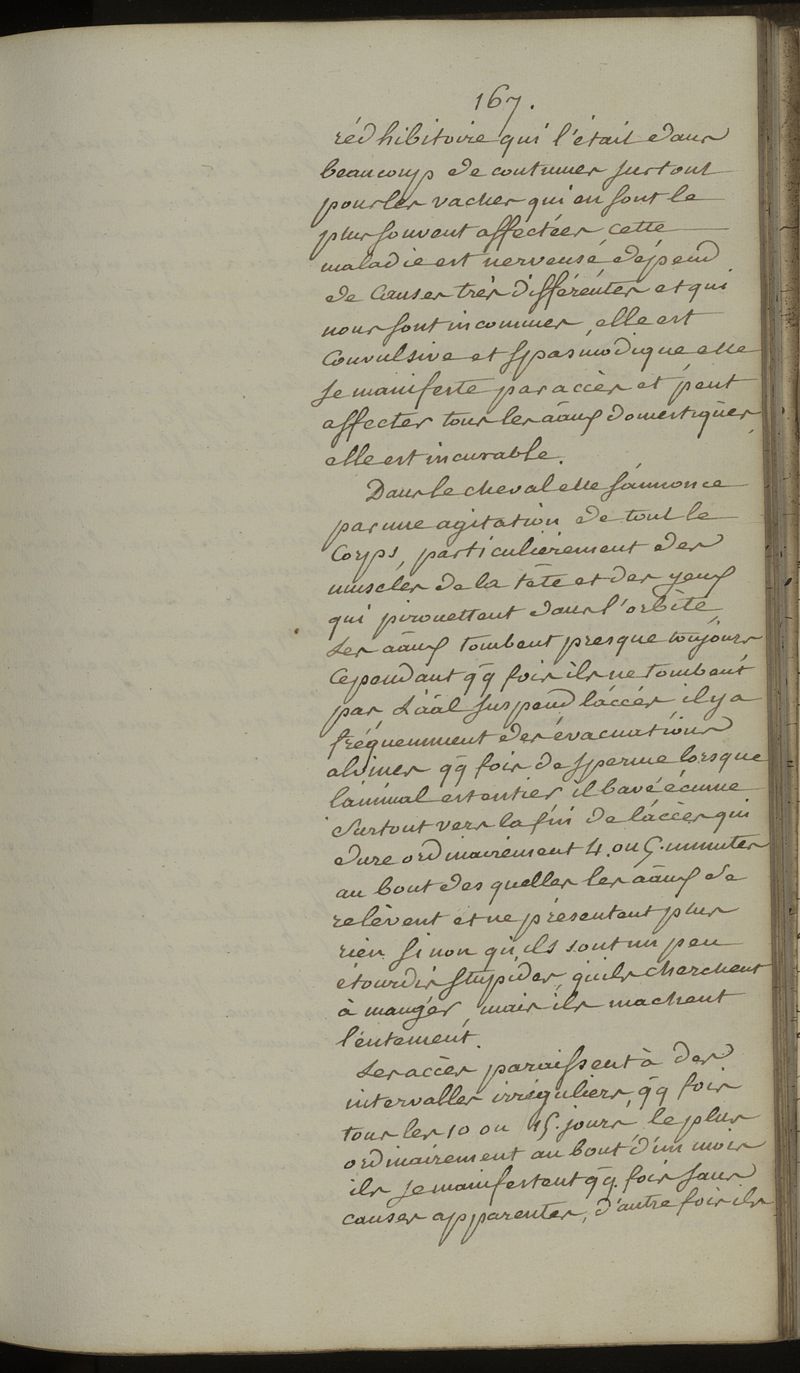 167.
rédhibitoire qui l'était dans
beaucoup de coutumes surtout
pour les vaches qui en sont le
plus souvent affectées, cette
maladie est nerveuse, dépend
de Causes très différentes et qui
nous sont inconnues, elle est
Convulsive et spasmodique elle
se manifeste par accès et peut
affecter tous les aāux domestiques,
elle est incurable.
Dans le cheval elle s'annonce
par une agitation de tout le
Corps, particulièrement des
muscles de la tête et des yeux
qui pirouettent dans l'orbite
Les aāux tombent presque toujours
Cependant qq̄ fois ils ne tombent
pas L'aāl suspend l'accès il y a
fréquemment des évacuations
alvines qq̄ fois de sperme lorsque
l'animal est entier, il bave écume
Surtout vers la fin de l'accès qui
dure ordinairement 4. ou 5. minutes
au bout des quelles les aāux se
relèvent et ne présentent plus
rien si non qu'ils sont un peu
étourdis stupides, qu'ils cherchent
à manger, mais ils machent
lentement.
Les accès paraissent à des
intervalles irréguliers, qq̄ fois
tous les 10 ou 15. jours, le plus
ordinairement au bout d'un mois
ils se manifestent qq̄. fois sans
causes apparentes, d'autre fois ils